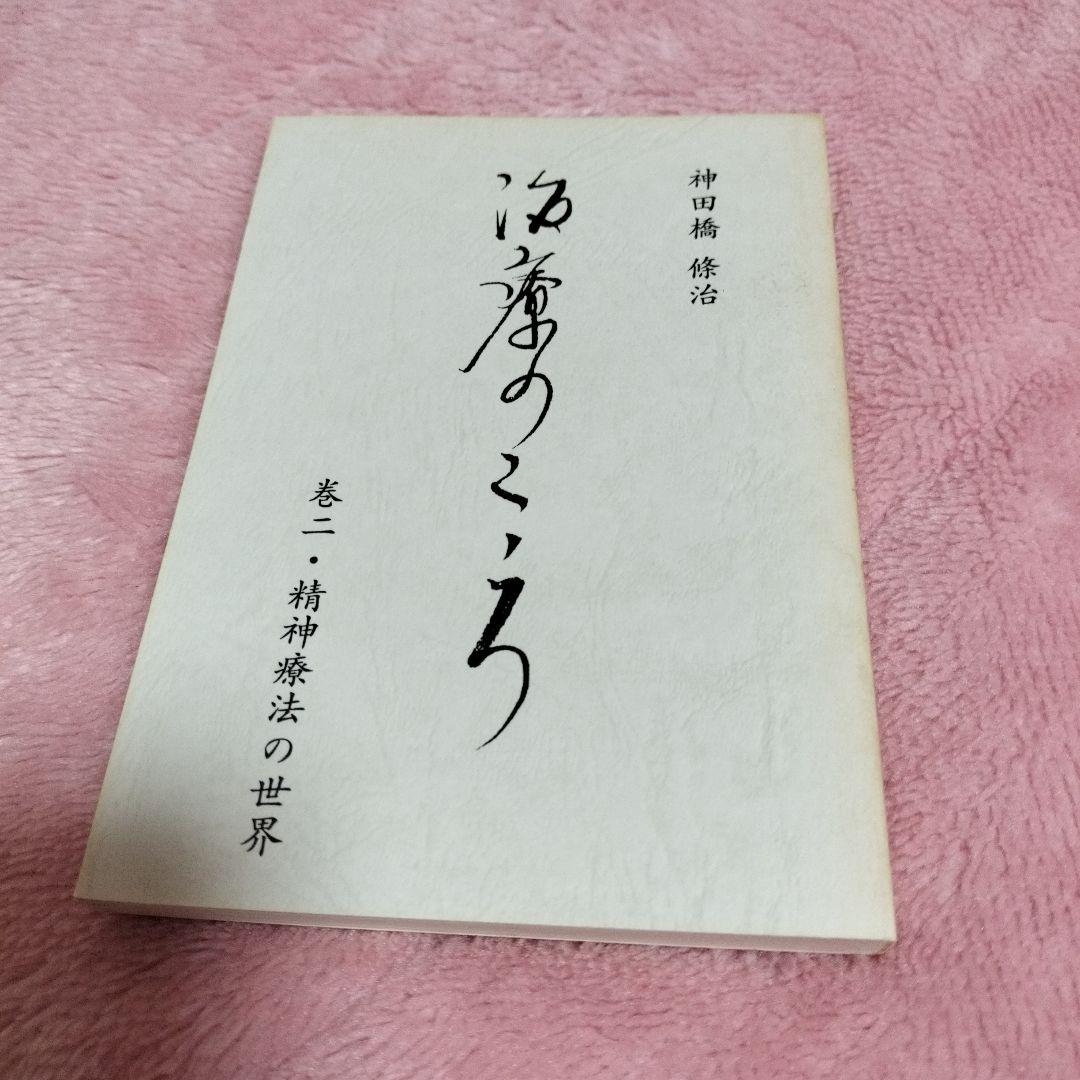 神田橋 條治
治療のこゝろ
巻二・精神療法の世界